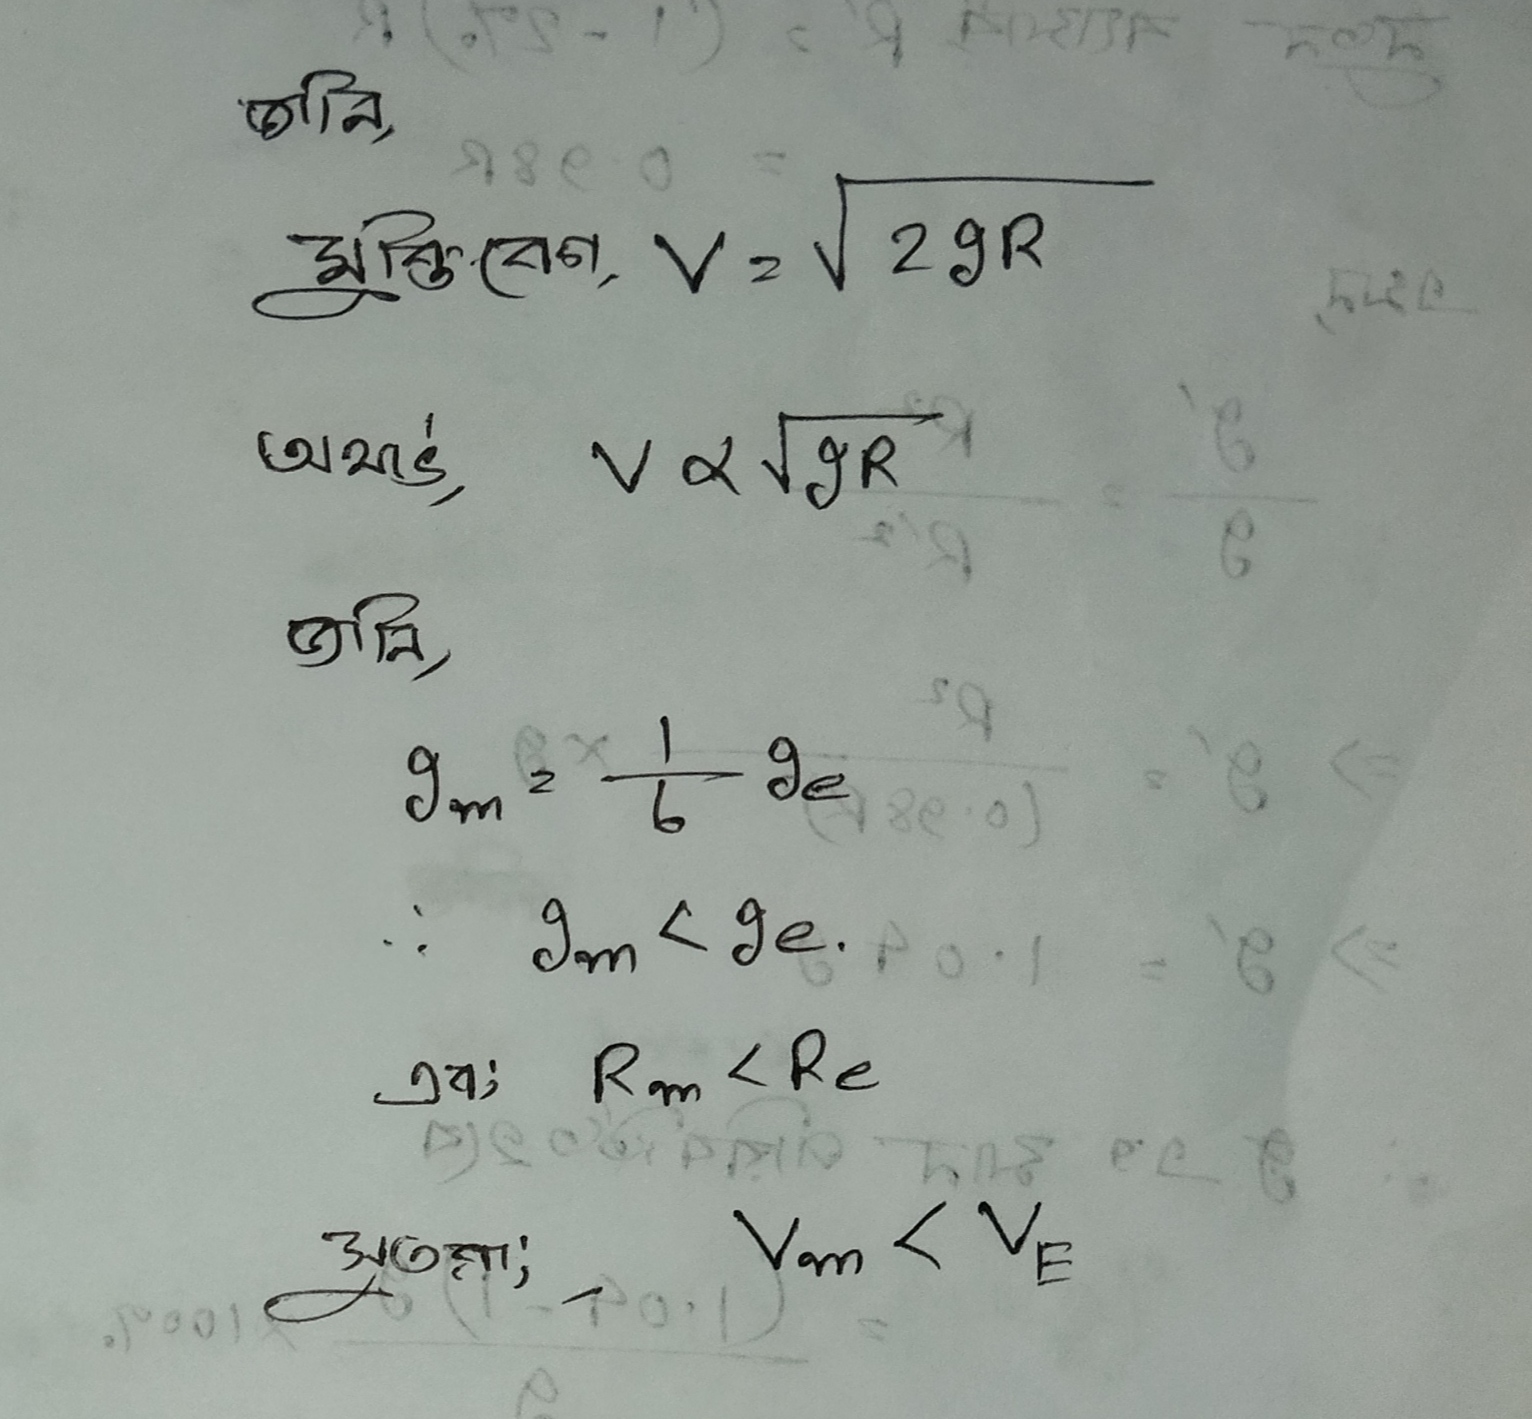 জানি,
মুক্তিবেগ, V = √2gR
অর্থাৎ, V ∝ √gR
জানি,
gm = 1/6 ge
∴ gm < ge.
এবং Rm < Re
সুতরাং, Vm < VE